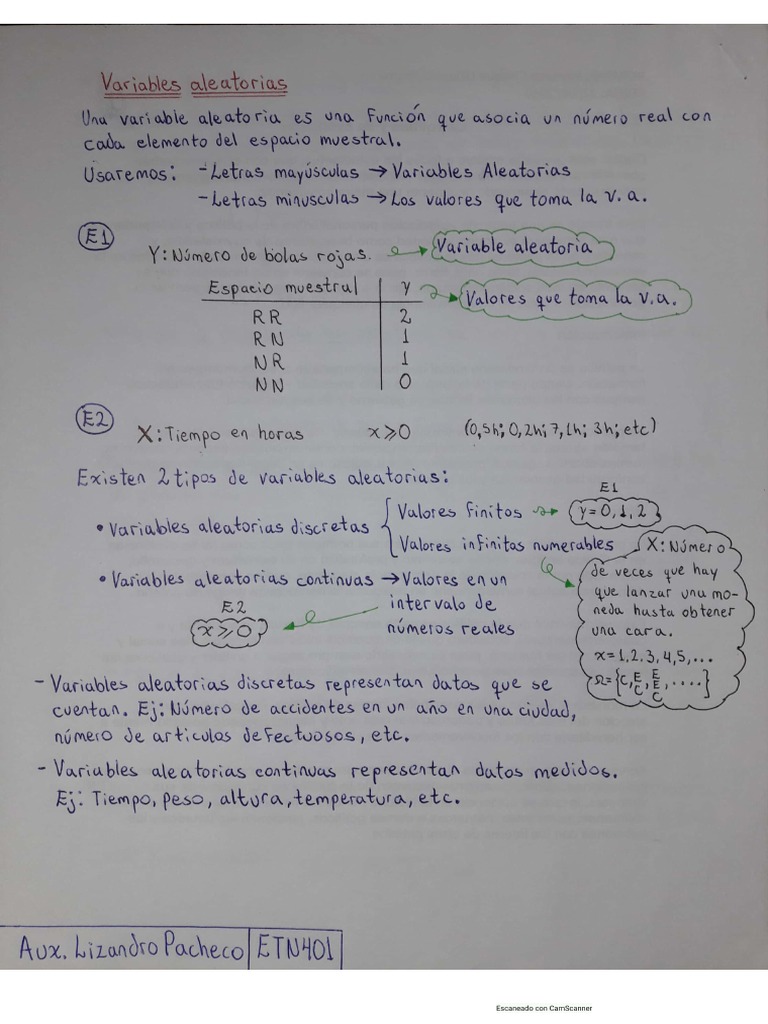 Variables aleatorias
Una variable aleatoria es una Función que asocia un número real con
cada elemento del espacio muestral.
Usaremos: - Letras mayúsculas → Variables Aleatorias
- Letras minusculas → Los valores que toma la v.a.
E1
Y: Número de bolas rojas. → Variable aleatoria
Espacio muestral | y → Valores que toma la v.a.
RR | 2
RN | 1
NR | 1
NN | 0
E2
X: Tiempo en horas x≥0 (0,5h; 0,2h; 7,1h; 3h; etc)
Existen 2 tipos de variables aleatorias:
• Variables aleatorias discretas { Valores finitos → E1 y=0,1,2
Valores infinitos numerables
X: Número
de veces que hay
que lanzar una mo-
neda hasta obtener
una cara.
x=1,2,3,4,5,...
Ω={C, E C, E E C, ....}
• Variables aleatorias continuas → Valores en un
intervalo de
números reales
E2
x≥0
- Variables aleatorias discretas representan datos que se
cuentan. Ej: Número de accidentes en un año en una ciudad,
número de articulos defectuosos, etc.
- Variables aleatorias continuas representan datos medidos.
Ej: Tiempo, peso, altura, temperatura, etc.
Aux. Lizandro Pacheco | ETN401
Escaneado con CamScanner